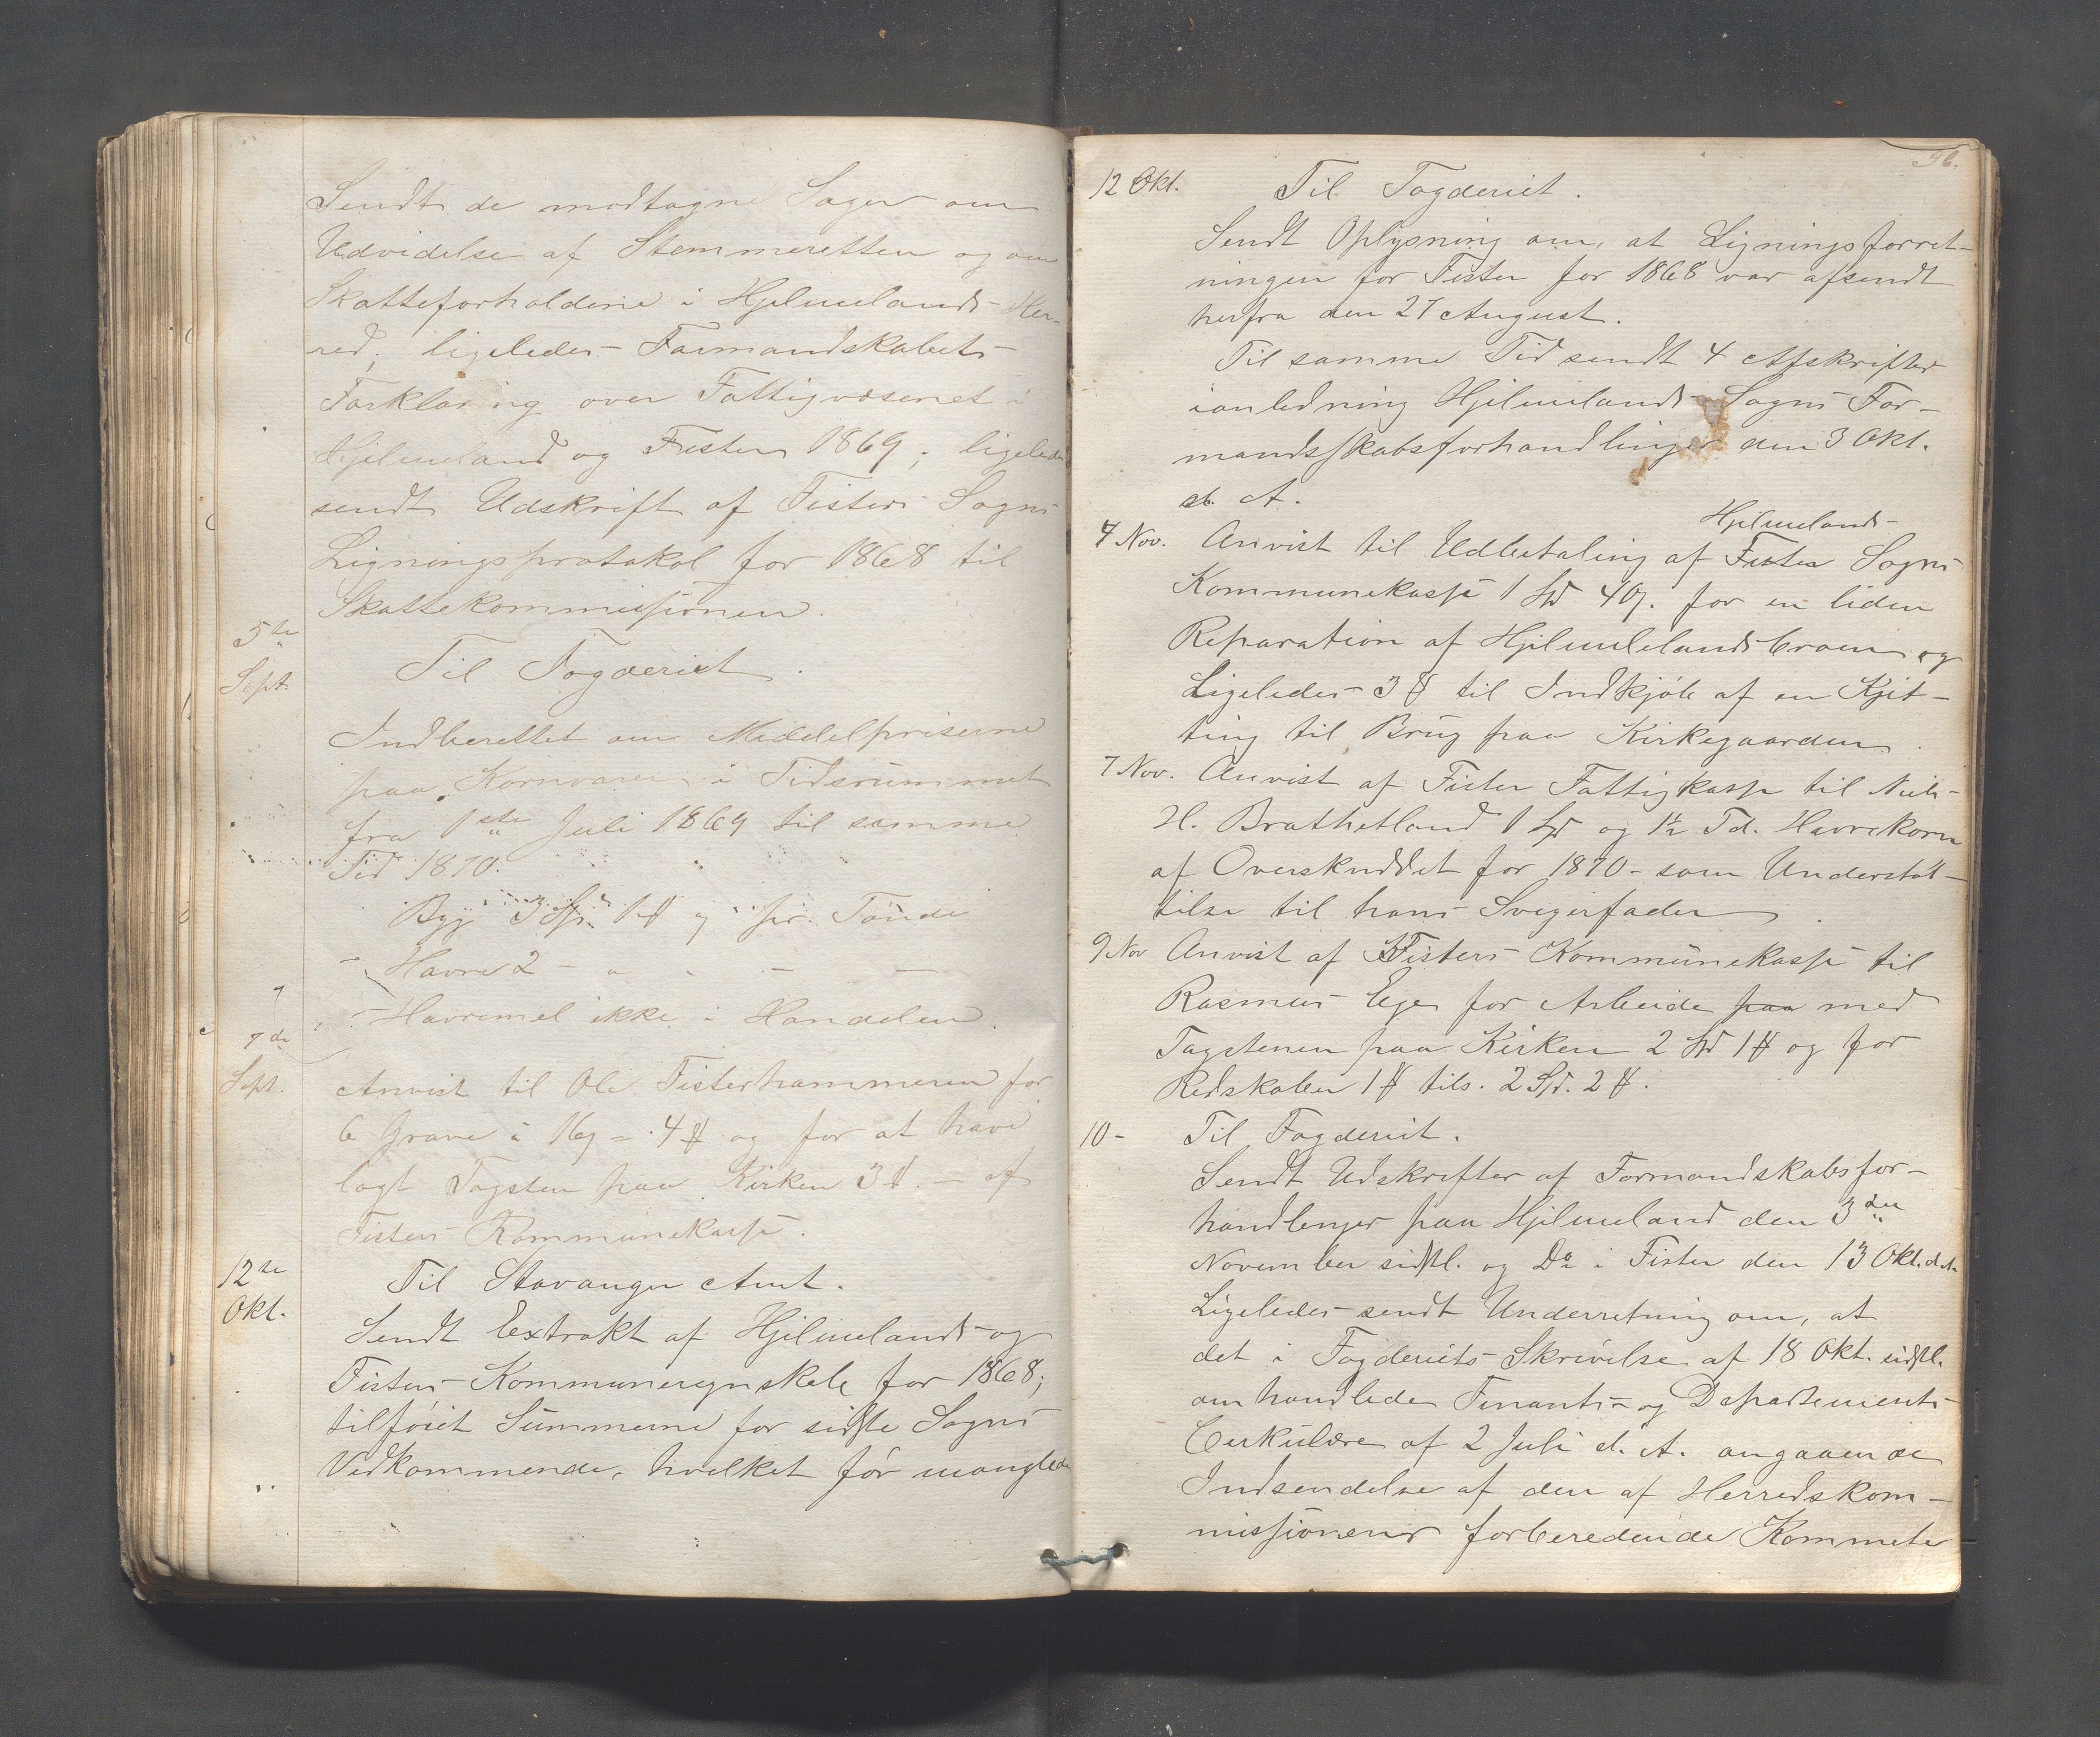 Sendt de modtagne Sager om
Udvidelse af Stemmeretten og om
Skatteforholdene i Hjelmelands Her-
red; ligeledes Formandskabets
Forklaring over Fattigvæsenet i
Hjelmeland og Fister 1869; ligeledes
sendt Udskrift af Fisters Sogns
Ligningsprotokol for 1868 til
Skattekommissionen.
5te Sept. Til Fogderiet.
Indberettet om Middelpriserne
paa Kornvarer i Tidsrummet
fra 1ste Juli 1869 til samme
Tid 1870.
Byg 3 Sp. 1 ort pr. Tønde
Havre 2 - " - -
Havremel ikke i Handelen.
7de Sept. Anvist til Ole Fisterhammeren for
6 Grave à 16 s = 4 ort og for at have
lagt Tagsten paa Kirken 3 ort. - af
Fisters Kommunekasse.
12te Okt. Til Stavanger Amt.
Sendt Extrakt af Hjelmelands og
Fisters Kommuneregnskab for 1868;
tilføiet Summerne for sidste Sogns
Vedkommende, hvilket før manglede
96.
12 Okt. Til Fogderiet.
Sendt Oplysning om, at Ligningsforret-
ningen for Fister for 1868 var afsendt
herfra den 27 August.
Til samme Tid sendt 4 Afskrifter
ianledning Hjelmelands Sogns For-
mandsskabsforhandlinger den 3 Okt.
d. A.
Hjelmelands
4 Nov. Anvist til Udbetaling af Fister Sogns
Kommunekasse 1 Spd 4 s. for en liden
Reparation af Hjelmelelands og
Ligeledes 3 ort til Indkjøb af en Kjet-
ting til Brug paa Kirkegaarden.
7 Nov. Anvist af Fister Fattigkasse til Niels
H. Brathetland 1 Spd og 1½ Td. Havrekorn
af Overskuddet for 1870 som Understøt-
telse til hans Svigerfader.
9 Nov Anvist af Fisters Kommunekasse til
Rasmus Ege for Arbeide paa med
Tagstenen paa Kirken 2 Spd 1 ort og for
Redskaber 1 ort tils. 2 Spd. 2 ort.
10 - Til Fogderiet.
Sendt Udskrifter af Formandskabsfor-
handlinger paa Hjelmeland den 3die
November sidstl. og Do i Fister den 13 Okt. d. A.
Ligeledes sendt Underretning om, at
det i Fogderiets Skrivelse af 18 Okt. sidstl.
omhandlede Finants- og Departements
Cirkulære af 2 Juli d. A. angaaende
Indsendelse af den af Herredskom-
missionens forberedende Kommete